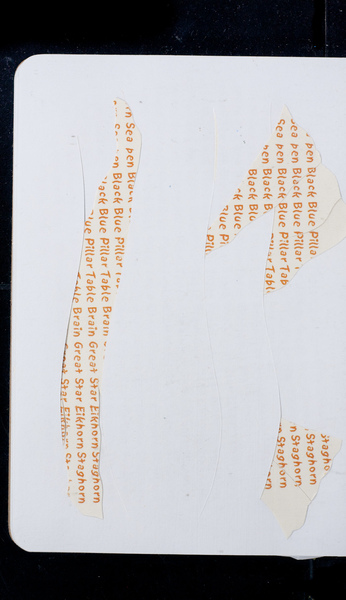 Black Blue Pillar
Sea pen Black Blue Pillar Tab
Sea pen Black Blue Pillar Tab
pen Black Blu
llar Tab
Black Blu
k Blue P
Blue Pi
Pill
Stagho
Staghorn
n Staghorn
Staghorn
n Sea pen Black B
pen Black Blue Pillar
Black Blue Pillar Table Brain
Blue Pillar Table Brain Great Star Elkhorn Staghorn
able Brain Great Star Elkhorn Staghorn
Great Star Elkhorn